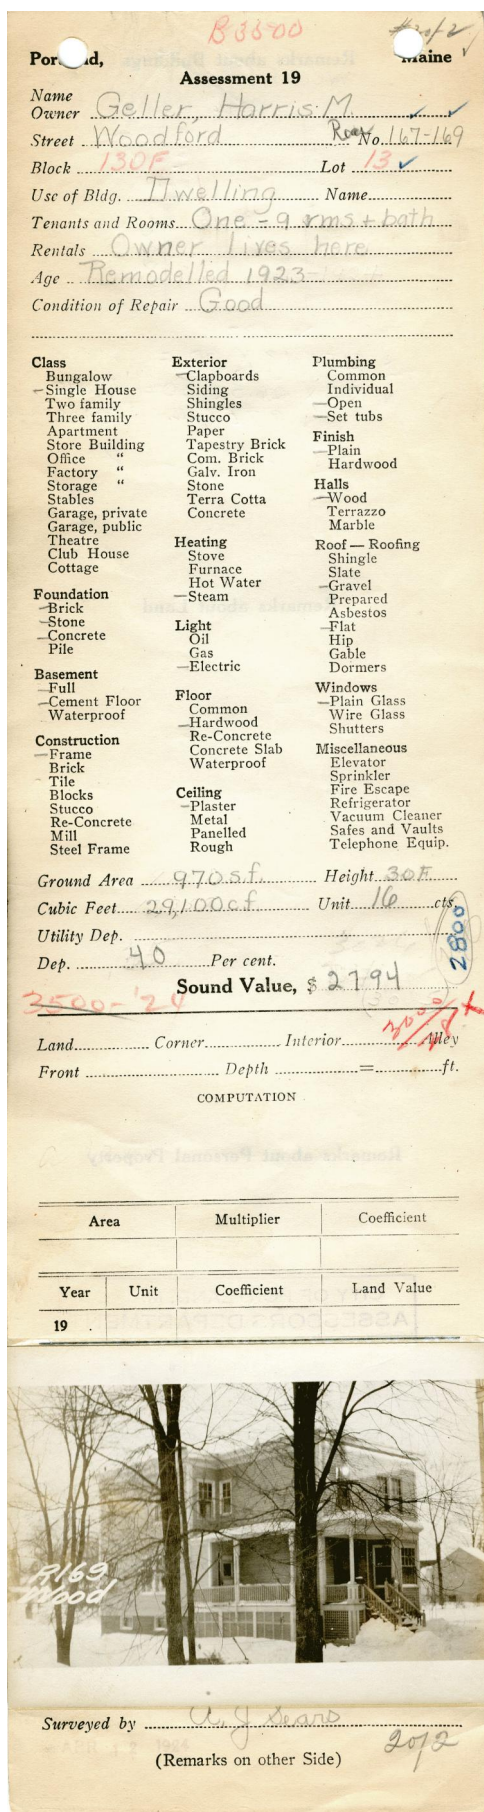 B3500
#2 of 2
Portland, Maine
Assessment 19
Name
Owner Geller, Harris M.
Street Woodford Rear No. 167-169
Block 130F Lot 13
Use of Bldg. Dwelling Name
Tenants and Rooms One - 9 rms + bath
Rentals Owner lives here
Age Remodelled 1923
Condition of Repair Good
Class
Bungalow
Single House
Two family
Three family
Apartment
Store Building
Office "
Factory "
Storage "
Stables
Garage, private
Garage, public
Theatre
Club House
Cottage
Foundation
Brick
Stone
Concrete
Pile
Basement
Full
Cement Floor
Waterproof
Construction
Frame
Brick
Tile
Blocks
Stucco
Re-Concrete
Mill
Steel Frame
Exterior
Clapboards
Siding
Shingles
Stucco
Paper
Tapestry Brick
Com. Brick
Galv. Iron
Stone
Terra Cotta
Concrete
Heating
Stove
Furnace
Hot Water
Steam
Light
Oil
Gas
Electric
Floor
Common
Hardwood
Re-Concrete
Concrete Slab
Waterproof
Ceiling
Plaster
Metal
Panelled
Rough
Plumbing
Common
Individual
Open
Set tubs
Finish
Plain
Hardwood
Halls
Wood
Terrazzo
Marble
Roof — Roofing
Shingle
Slate
Gravel
Prepared
Asbestos
Flat
Hip
Gable
Dormers
Windows
Plain Glass
Wire Glass
Shutters
Miscellaneous
Elevator
Sprinkler
Fire Escape
Refrigerator
Vacuum Cleaner
Safes and Vaults
Telephone Equip.
Ground Area 970 sf Height 30 F
Cubic Feet 29,100 cf Unit 16 cts.
Utility Dep.
2800
Dep. 40 Per cent.
Sound Value, $ 2794
3500-'24
Land Corner Interior Alley
Front Depth = ft.
COMPUTATION
Area Multiplier Coefficient
Year Unit Coefficient Land Value
19
R169
Wood
Surveyed by A. J Sears
(Remarks on other Side)
2 of 2